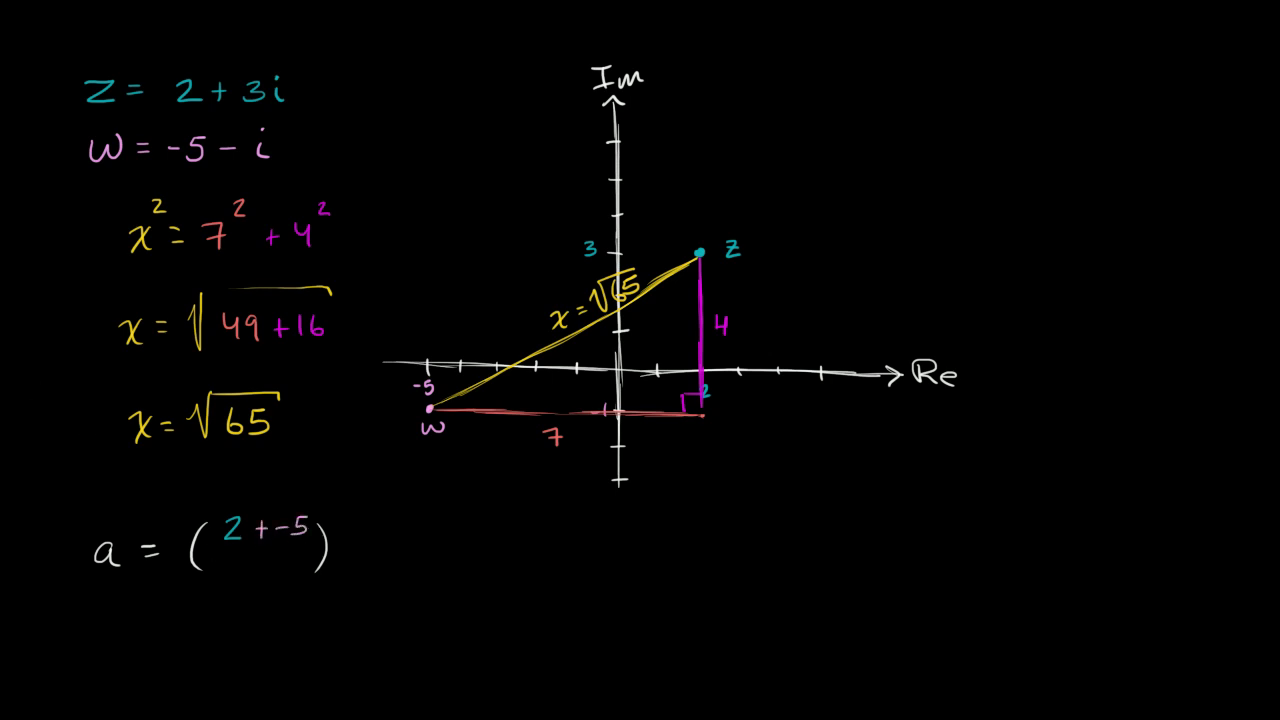 z = 2 + 3i
w = -5 - i
x² = 7² + 4²
x = √49 + 16
x = √65
a = ( 2 + -5 )
Im
3
z
x = √65
4
-5
Re
2
-1
w
7